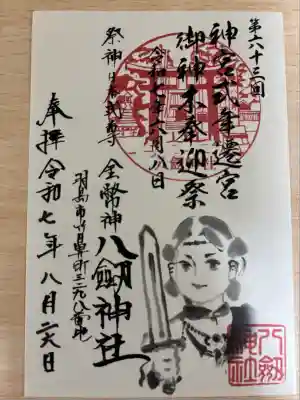 第六十三回
神宮式年遷宮
御神木奉迎祭
令和七年六月八日
祭神日本武尊
金幣神
八劔神社
羽島市竹鼻町三二九八番地
奉拝令和七年八月六日
八劔神社